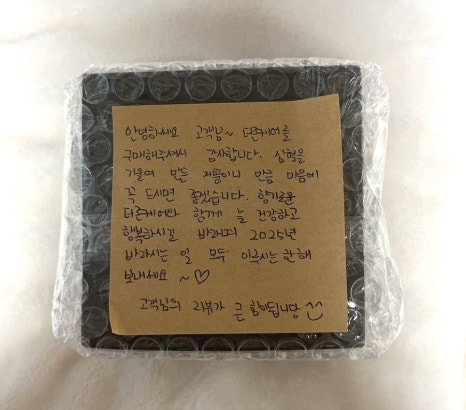 안녕하세요 고객님~ 더존케어를
구매해주셔서 감사합니다. 심혈을
기울여 만든 제품이니 만큼 마음에
꼭 드시면 좋겠습니다. 향기로운
더존케어와 함께 늘 건강하고
행복하시길 바라며 2025년
바라시는 일 모두 이루시는 한해
보내세요 ~♡
고객님의 리뷰가 큰 힘이됩니당